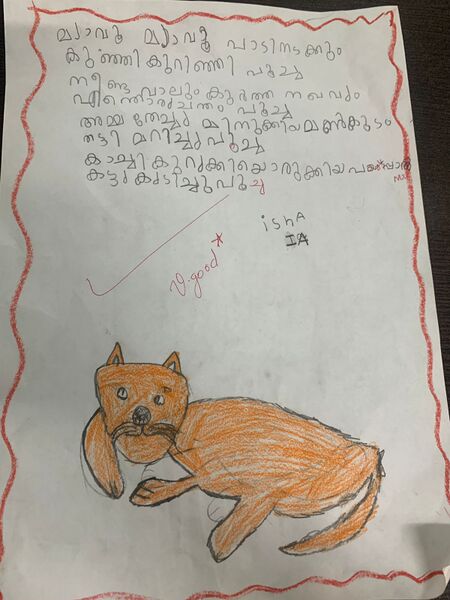 മ്യാവൂ മ്യാവൂ പാടിനടക്കും
കുഞ്ഞികുറിഞ്ഞി പൂച്ച
നീണ്ട വാലും കൂർത്ത നഖവും
എന്തൊരുചന്തം പൂച്ച
അമ്മ തേച്ചു മിനുക്കിയ മൺകുടം
തട്ടി മറിച്ചു പൂച്ച
കാച്ചി കുറുക്കിയൊരുക്കിയ
കട്ടു കുടിച്ചു പൂച്ച
ishA
IA
v.good